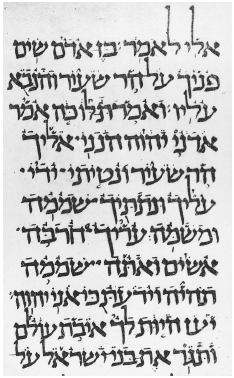 אלי לאמר׃ בן אדם שים
פניך על הר שעיר והנבא
עליו׃ ואמרת לו כה אמר
אדני יהוה הנני אליך
הר שעיר ונטיתי ידי
עליך ונתתיך שממה
ומשמה׃ עריך חרבה
אשים ואתה שממה
תהיה וידעת כי אני יהוה׃
יען היות לך איבת עולם
ותגר את בני ישראל על